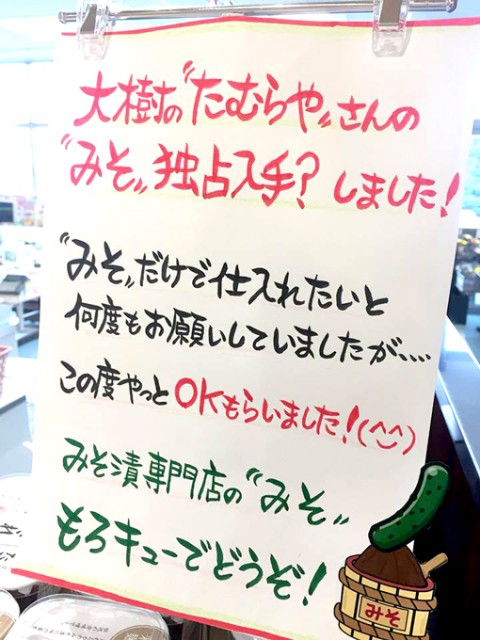 大樹の〝たむらや〟さんの
〝みそ〟独占入手？しました！
〝みそ〟だけで仕入れたいと
何度もお願いしていましたが……
この度やっとOKもらいました！(^^)
みそ漬専門店の〝みそ〟
もろキューでどうぞ！
みそ